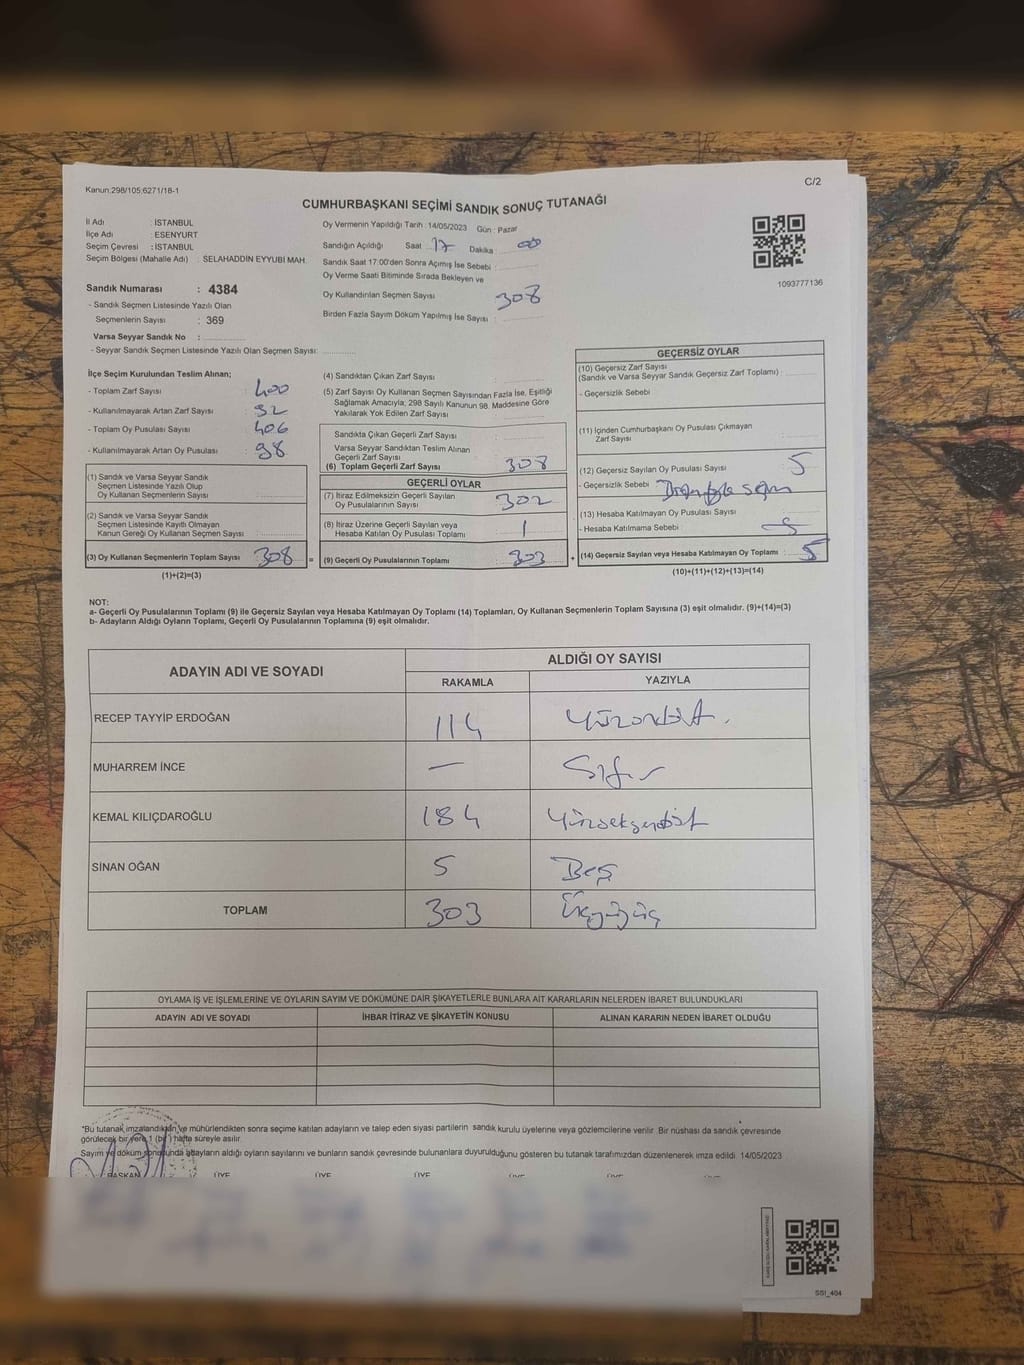 C/2
Kanun:298/105;6271/18-1
CUMHURBAŞKANI SEÇİMİ SANDIK SONUÇ TUTANAĞI
İl Adı : İSTANBUL
İlçe Adı : ESENYURT
Seçim Çevresi : İSTANBUL
Seçim Bölgesi (Mahalle Adı) : SELAHADDİN EYYUBİ MAH.
Oy Vermenin Yapıldığı Tarih : 14/05/2023 Gün : Pazar
Sandığın Açıldığı Saat : 17 Dakika : 00
Sandık Saat 17:00'den Sonra Açımış İse Sebebi :
Oy Verme Saati Bitiminde Sırada Bekleyen ve
Oy Kullandırılan Seçmen Sayısı 308
Birden Fazla Sayım Döküm Yapılmış İse Sayısı :
1093777136
Sandık Numarası : 4384
- Sandık Seçmen Listesinde Yazılı Olan
Seçmenlerin Sayısı : 369
Varsa Seyyar Sandık No :
- Seyyar Sandık Seçmen Listesinde Yazılı Olan Seçmen Sayısı:
İlçe Seçim Kurulundan Teslim Alınan;
- Toplam Zarf Sayısı : 400
- Kullanılmayarak Artan Zarf Sayısı : 92
- Toplam Oy Pusulası Sayısı : 406
- Kullanılmayarak Artan Oy Pusulası : 98
(1) Sandık ve Varsa Seyyar Sandık
Seçmen Listesinde Yazılı Olup
Oy Kullanan Seçmenlerin Sayısı
(2) Sandık ve Varsa Seyyar Sandık
Seçmen Listesinde Kayıtlı Olmayan
Kanun Gereği Oy Kullanan Seçmen Sayısı
(3) Oy Kullanan Seçmenlerin Toplam Sayısı 308 =
(1)+(2)=(3)
(4) Sandıktan Çıkan Zarf Sayısı
(5) Zarf Sayısı Oy Kullanan Seçmen Sayısından Fazla İse, Eşitliği
Sağlamak Amacıyla; 298 Sayılı Kanunun 98. Maddesine Göre
Yakılarak Yok Edilen Zarf Sayısı
Sandıkta Çıkan Geçerli Zarf Sayısı
Varsa Seyyar Sandıktan Teslim Alınan
Geçerli Zarf Sayısı
(6) Toplam Geçerli Zarf Sayısı 308
GEÇERLİ OYLAR
(7) İtiraz Edilmeksizin Geçerli Sayılan
Oy Pusulalarının Sayısı 302
(8) İtiraz Üzerine Geçerli Sayılan veya
Hesaba Katılan Oy Pusulası Toplamı 1
(9) Geçerli Oy Pusulalarının Toplamı 303 +
GEÇERSİZ OYLAR
(10) Geçersiz Zarf Sayısı
(Sandık ve Varsa Seyyar Sandık Geçersiz Zarf Toplamı) :
- Geçersizlik Sebebi
(11) İçinden Cumhurbaşkanı Oy Pusulası Çıkmayan
Zarf Sayısı
(12) Geçersiz Sayılan Oy Pusulası Sayısı : 5
- Geçersizlik Sebebi
(13) Hesaba Katılmayan Oy Pusulası Sayısı
- Hesaba Katılmama Sebebi :
(14) Geçersiz Sayılan veya Hesaba Katılmayan Oy Toplamı : 5
(10)+(11)+(12)+(13)=(14)
NOT:
a- Geçerli Oy Pusulalarının Toplamı (9) ile Geçersiz Sayılan veya Hesaba Katılmayan Oy Toplamı (14) Toplamları, Oy Kullanan Seçmenlerin Toplam Sayısına (3) eşit olmalıdır. (9)+(14)=(3)
b- Adayların Aldığı Oyların Toplamı, Geçerli Oy Pusulalarının Toplamına (9) eşit olmalıdır.
ADAYIN ADI VE SOYADI ALDIĞI OY SAYISI
RAKAMLA YAZIYLA
RECEP TAYYİP ERDOĞAN 114 Yüzondört.
MUHARREM İNCE — Sıfır
KEMAL KILIÇDAROĞLU 184 Yüzseksendört
SİNAN OĞAN 5 Beş
TOPLAM 303 Üçyüzüç
OYLAMA İŞ VE İŞLEMLERİNE VE OYLARIN SAYIM VE DÖKÜMÜNE DAİR ŞİKAYETLERLE BUNLARA AİT KARARLARIN NELERDEN İBARET BULUNDUKLARI
ADAYIN ADI VE SOYADI İHBAR İTİRAZ VE ŞİKAYETİN KONUSU ALINAN KARARIN NEDEN İBARET OLDUĞU
"Bu tutanak imzalandıktan ve mühürlendikten sonra seçime katılan adayların ve talep eden siyasi partilerin sandık kurulu üyelerine veya gözlemcilerine verilir. Bir nüshası da sandık çevresinde
görülecek bir yere 1 (bir) hafta süreyle asılır.
Sayım ve döküm sonucunda adayların aldığı oyların sayılarını ve bunların sandık çevresinde bulunanlara duyurulduğunu gösteren bu tutanak tarafımızdan düzenlenerek imza edildi. 14/05/2023
BAŞKAN ÜYE ÜYE ÜYE ÜYE ÜYE ÜYE
SSI_404